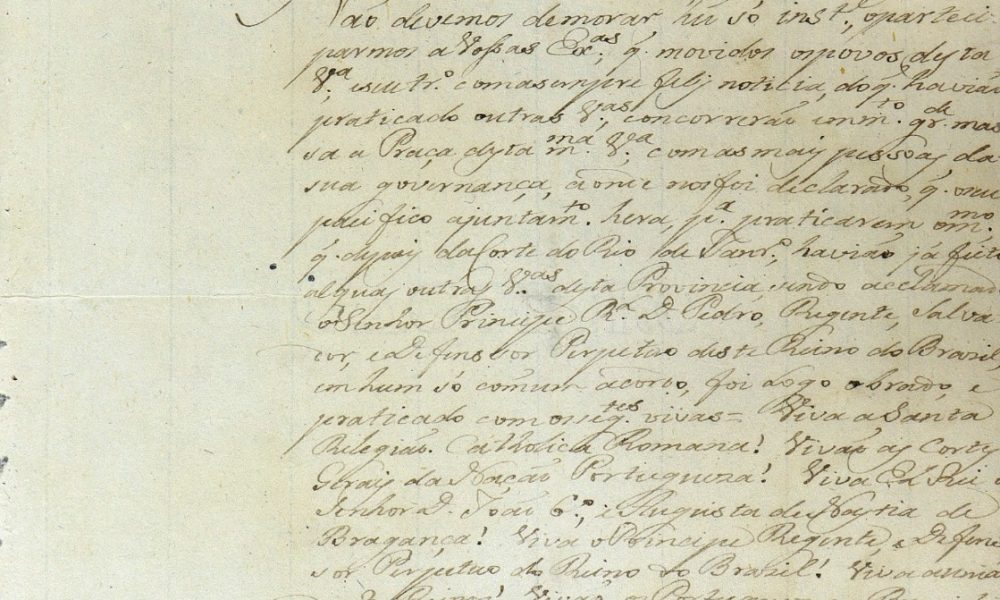 Não devemos demorar hũ só inst.e, o parteci-
parmos a Vossas Ex.as, q. movidos os povos desta
V.a, e seu tr.o com a sempre feliz noticia, do q. havião
praticado outras V.as, concorrerão em m.to gr.de mas
sa a Praça desta m.ma V.a com as mais pessoas da
sua governança, aonde nos foi declarado, q. o seu
pacifico ajuntam.to hera, p.a praticarem o m.mo
q. depois da Corte do Rio de Janr.o, havião já feito
algũas outras V.as desta Provincia, sendo acclamado
o Senhor Principe R.l D. Pedro, Regente, Salva
dor, e Defensor Perpetuo deste Reino do Brazil,
em hum só comum acordo, foi logo obrado, e
praticado com os seg.tes vivas = Viva a Santa
Relegião Catholica Romana! Vivão as Cortes
Gerais da Nação Portugueza! Viva El Rei o
Senhor D. João 6.o, e Augusta Denastia de
Bragança! Viva o Principe Regente, e Defen
sor Perpetuo do Reino do Brazil! Viva a união
Vivão os Portuguezes